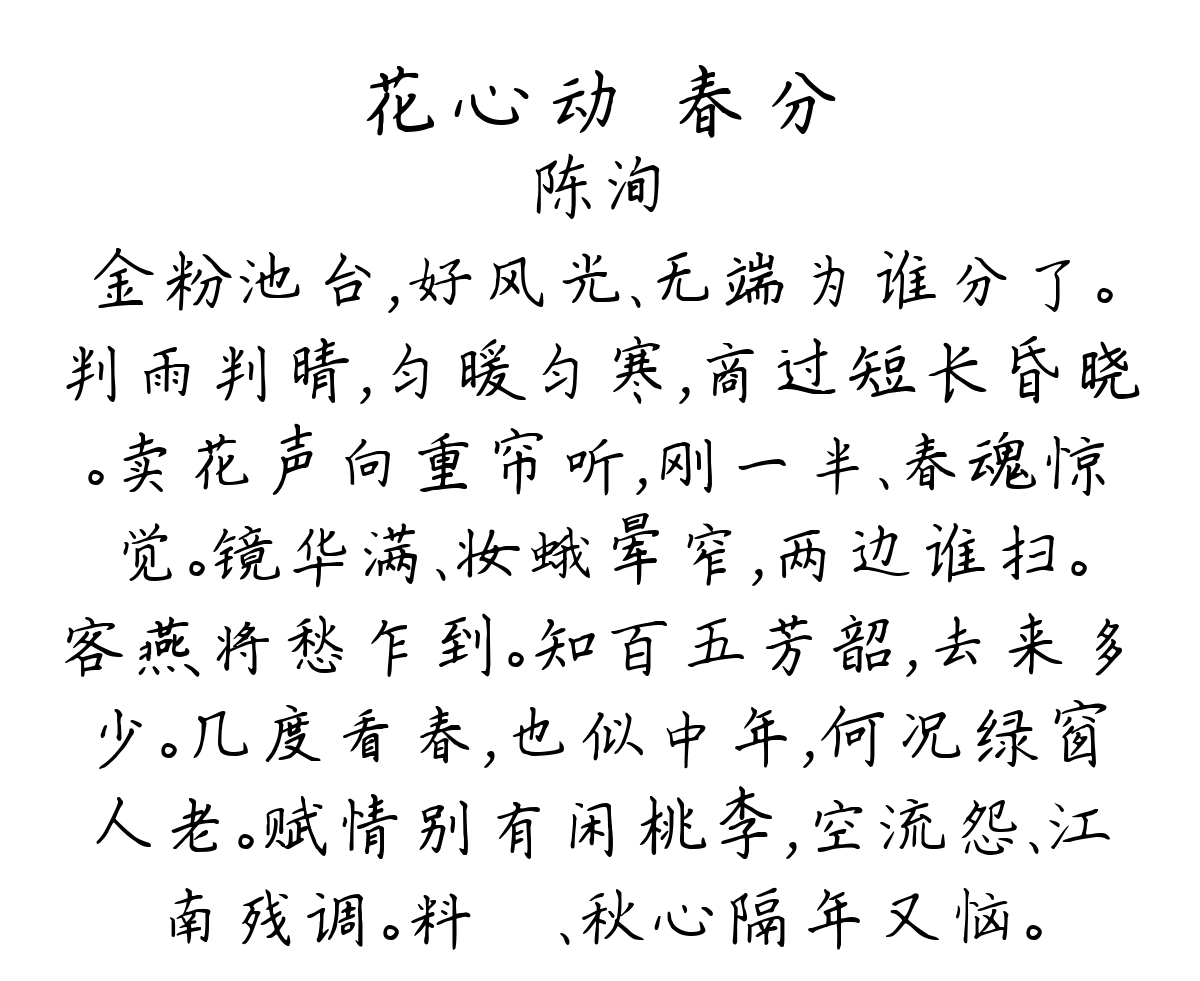 花心动 春分
陈洵
金粉池台,好风光、无端为谁分了。
判雨判晴,匀暖匀寒,商过短长昏晓
。卖花声向重帘听,刚一半、春魂惊
觉。镜华满、妆蛾晕窄,两边谁扫。
客燕将愁乍到。知百五芳韶,去来多
少。几度看春,也似中年,何况绿窗
人老。赋情别有闲桃李,空流怨、江
南残调。料 、秋心隔年又恼。